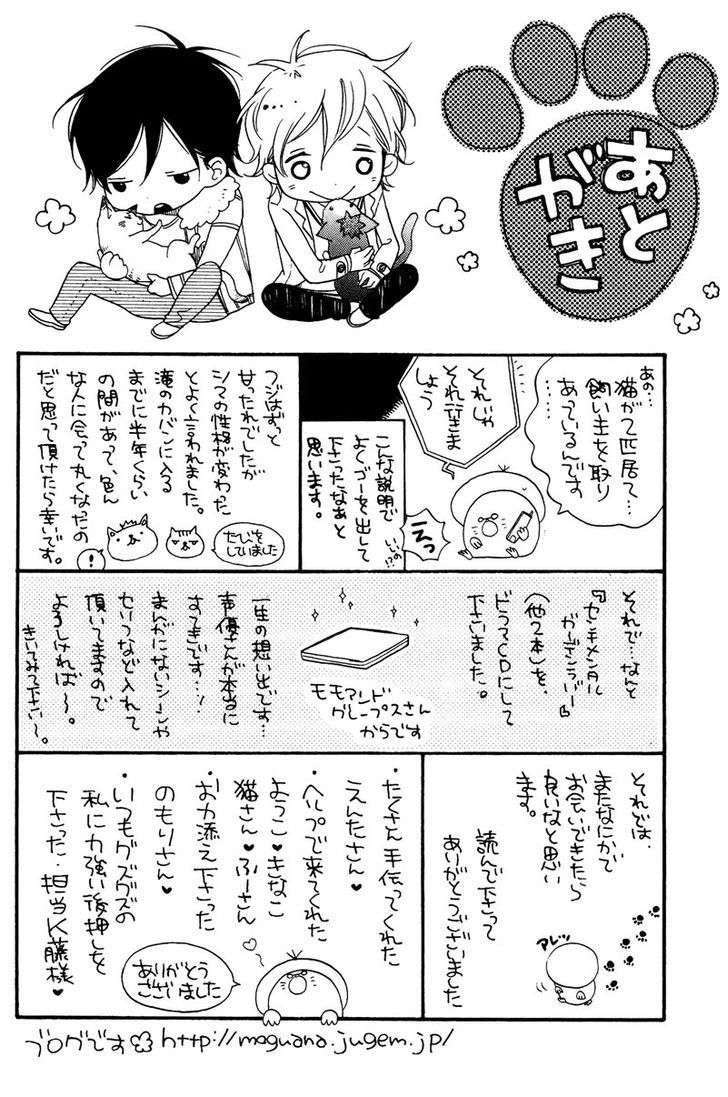 あと
がき
あの…
猫が7匹居て…
飼い主を取り
あっているんです
それじゃ
それ行きま
しょう
こんな説明で
よくゴーを出して
下さったなぁと
思います。
いいの!?
えっ
フジはずっと
甘ったれでしたが
シマの性格が変わった
とよく言われました。
滝のカバンに入る
までに半年くらい
の間があって、色ん
な人に会って丸くなったの
だと思って頂けたら幸いです。
たびを
していました
!
それで…なんと
『センチメンタル
ガーデンラバー』
(他2本)を、
ドラマCDにして
下さいました。
モモアンド
グレープスさん
からです
一生の想い出です…
声優さんが本当に
すてきです…!
まんがにないシーンや
セリフなど入れて
頂いてますので
よろしければ〜。
きいてみて下さい〜。
それでは、
またなにかで
お会いできたら
良いなと思い
ます。
読んで下さって
ありがとうございました
アレッ
・たくさん手伝ってくれた
えんたさん♥
・ヘルプで来てくれた
ようこ♥きなこ
猫さん♥ふーさん
・お力添え下さった
のもりさん♥
・いつもグズグズの
私に力強い後押しを
下さった…担当K藤様♥
ありがとう
ございました
ブログです http://moguana.jugem.jp/